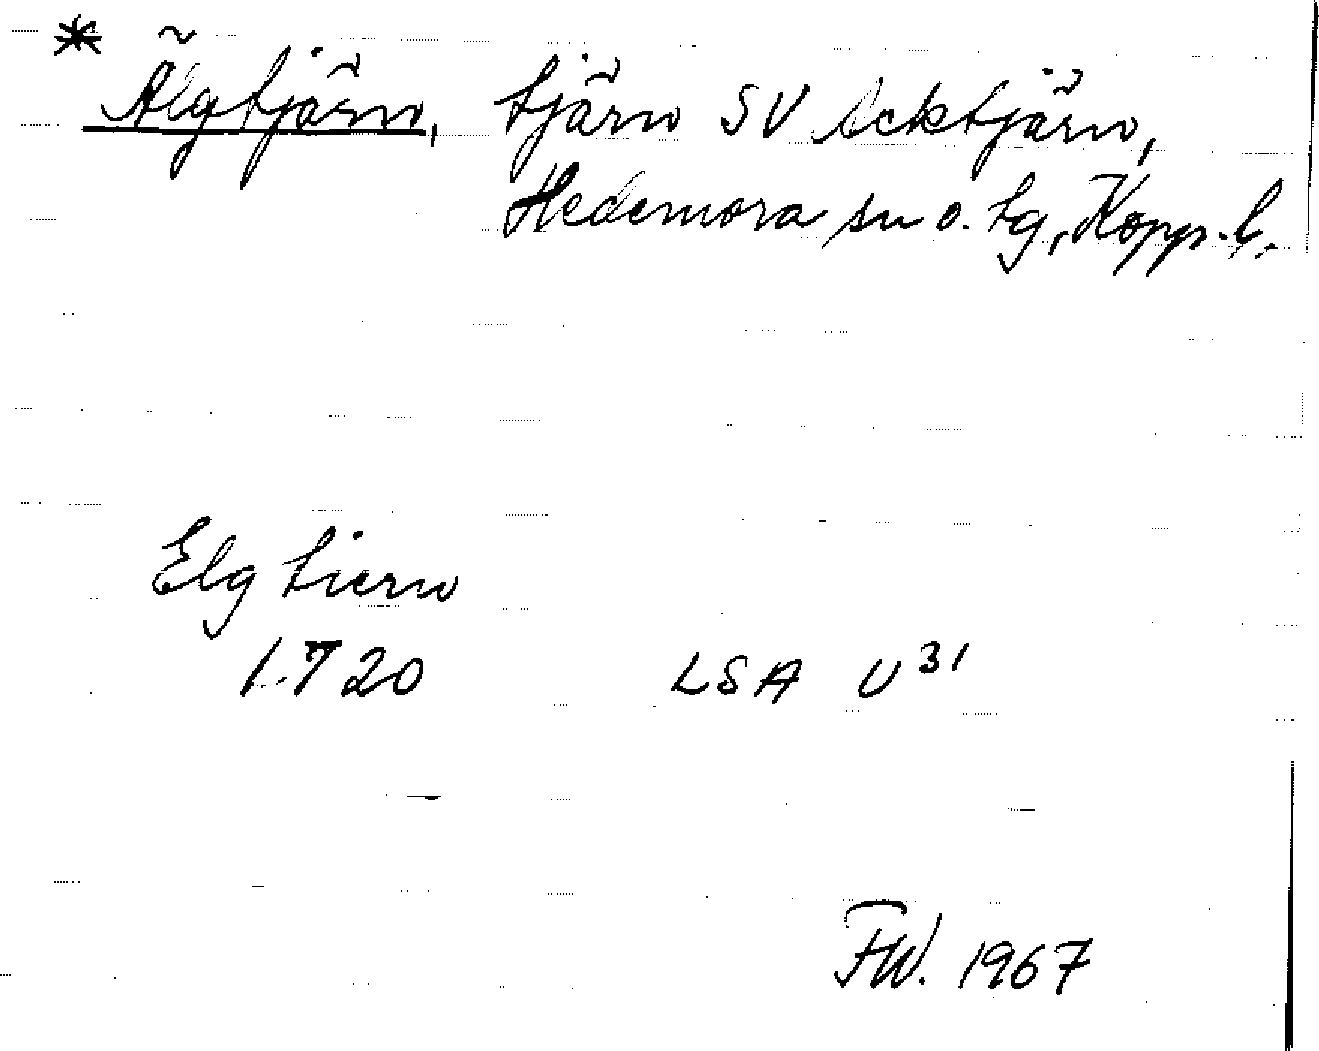 * Älgtjärn, tjärn SV Acktjärn,
Hedemora sn o. tg, Kopp. l.
Elg tiern
1720 LSA U 31
FW. 1967